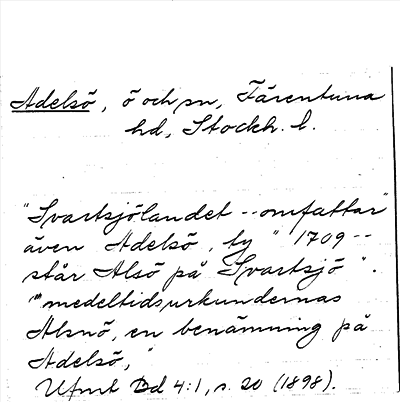 Adelsö, ö och sn, Färentuna
hd, Stockh. l.
"Svartsjölandet -- omfattar"
även Adelsö, ty " 1709 --
står Alsö på Svartsjö ".
"medeltidsurkundernas
Alsnö, en benämning på
Adelsö,"
Ufmt Bd 4:1, s. 20 (1898).